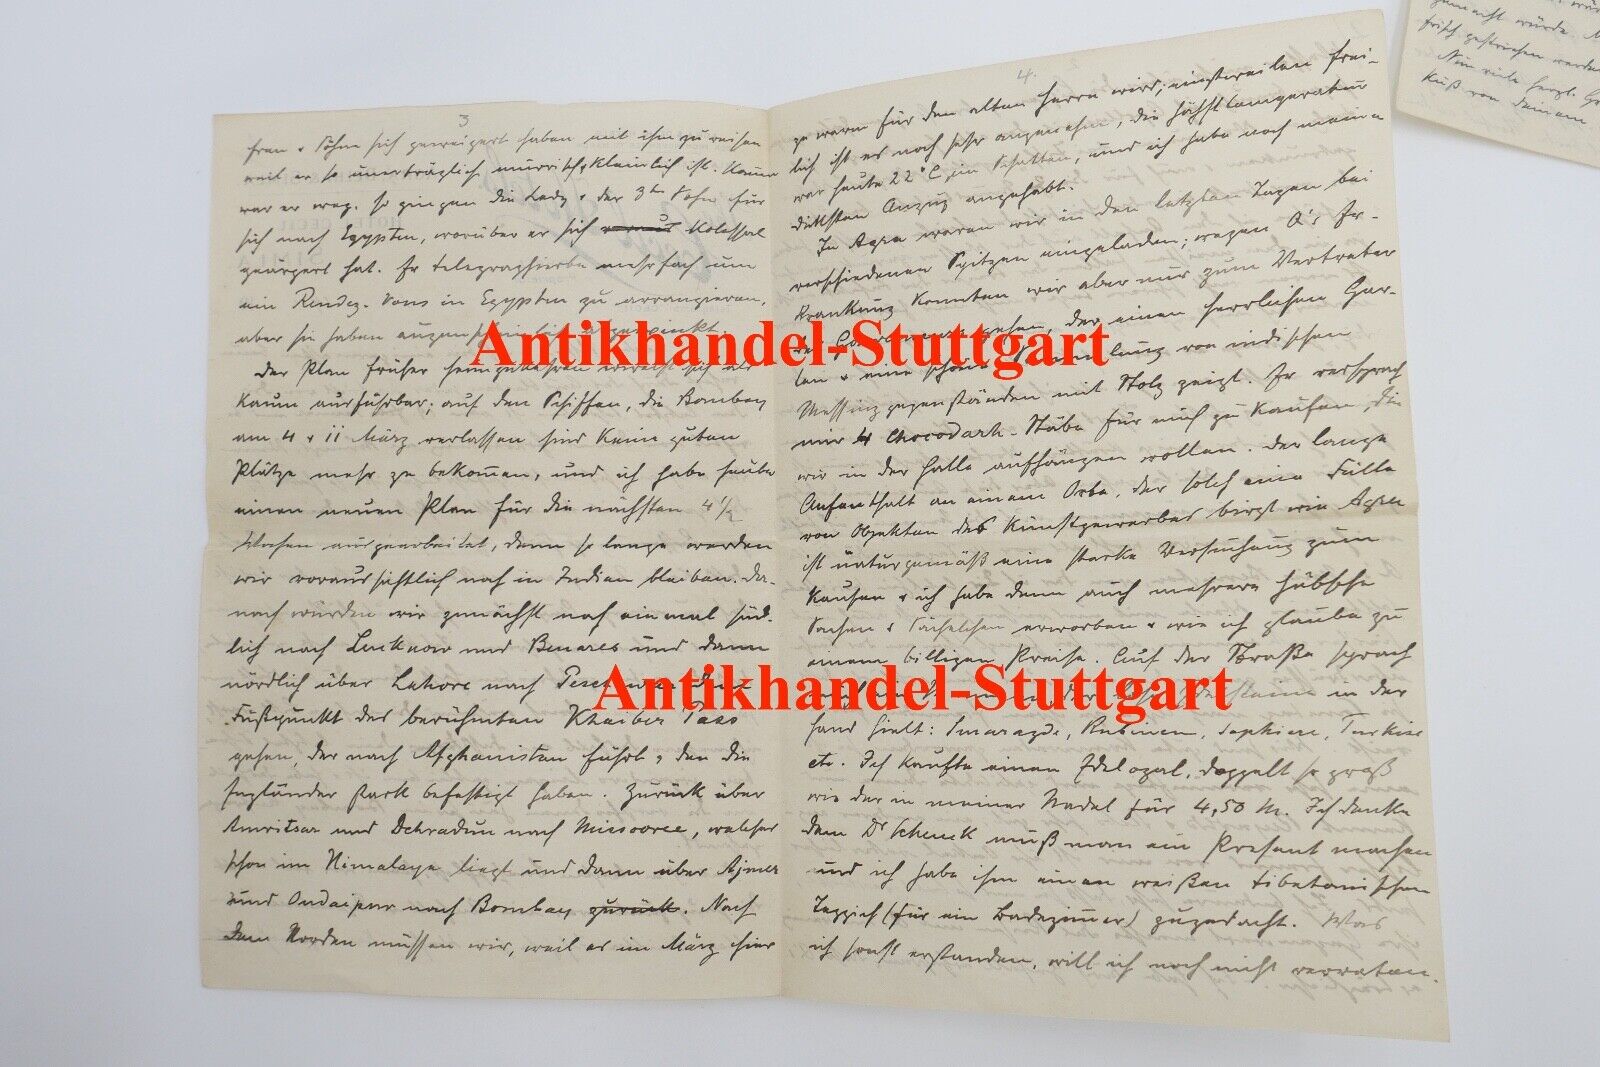 3
Frau & Söhne sich geweigert haben mit ihm zu reisen
weil er so unerträglich mürrisch, kleinlich ist. Kaum
war er weg, so gingen die Lady & der 3te Sohn für
sich nach Egypten, worüber er sich kolossal
geärgert hat. Er telegraphierte mehrfach um
ein Rendez-vous in Egypten zu arrangieren,
aber sie haben augenscheinlich abgewinkt.
Der Plan früher heimzukehren erweist sich als
kaum ausführbar; auf den Schiffen, die Bombay
am 4 & 11 März verlassen sind keine guten
Plätze mehr zu bekommen, und ich habe heute
einen neuen Plan für die nächsten 4 1/2
Wochen ausgearbeitet, denn so lange werden
wir voraussichtlich noch in Indien bleiben. Da-
nach würden wir zunächst noch einmal süd-
lich nach Lucknow und Benares und dann
nördlich über Lahore nach Peschawar dem
Fußpunkt des berühmten Khaiber Pass
gehen, der nach Afghanistan führt & den die
Engländer stark befestigt haben. Zurück über
Amritsar und Dehradun nach Missooree, welches
schon im Himalaya liegt und dann über Ajmer
und Oudaipur nach Bombay zurück. Nach
dem Norden müssen wir, weil es im März hier
4.
zu warm für den alten Herrn wird; einstweilen frei-
lich ist es noch sehr angenehm, die Höchsttemperatur
war heute 22° C im Schatten, und ich habe noch meinen
dicksten Anzug angehabt.
In Agra waren wir in den letzten Tagen bei
verschiedenen Spitzen eingeladen; wegen O's Er-
krankung konnten wir aber nur zum Vertreter
des Gouverneurs gehen, der einen herrlichen Gar-
ten & eine schöne Sammlung von indischen
Messinggegenständen mit Stolz zeigt. Er versprach
mir 4 Stäbe für mich zu kaufen, die
wir in der Halle aufhängen wollen. Der lange
Aufenthalt an einem Orte, der solch eine Fülle
von Objekten des Kunstgewerbes birgt wie Agra
ist naturgemäß eine starke Versuchung zum
Kaufen & ich habe denn auch mehrere hübsche
Sachen & Sächelchen erworben & wie ich glaube zu
einem billigen Preise. Auf der Straße sprach
mich ein der Edelsteine in der
Hand hielt: Smaragde, Rubinen, Saphire, Türkise
etc. Ich kaufte einen Edelopal, doppelt so groß
wie der in meiner Nadel für 4,50 M. Ich denke
dem Dr Schenck muß man ein Present machen
und ich habe ihm einen weißen tibetanischen
Teppich (für ein Badezimmer) zugedacht. Was
ich sonst erstanden, will ich noch nicht verraten.
gemacht würde.
frisch gestrichen werden
Nun viele herzl. Gr
Kuß von Deinem
Antikhandel-Stuttgart
Antikhandel-Stuttgart